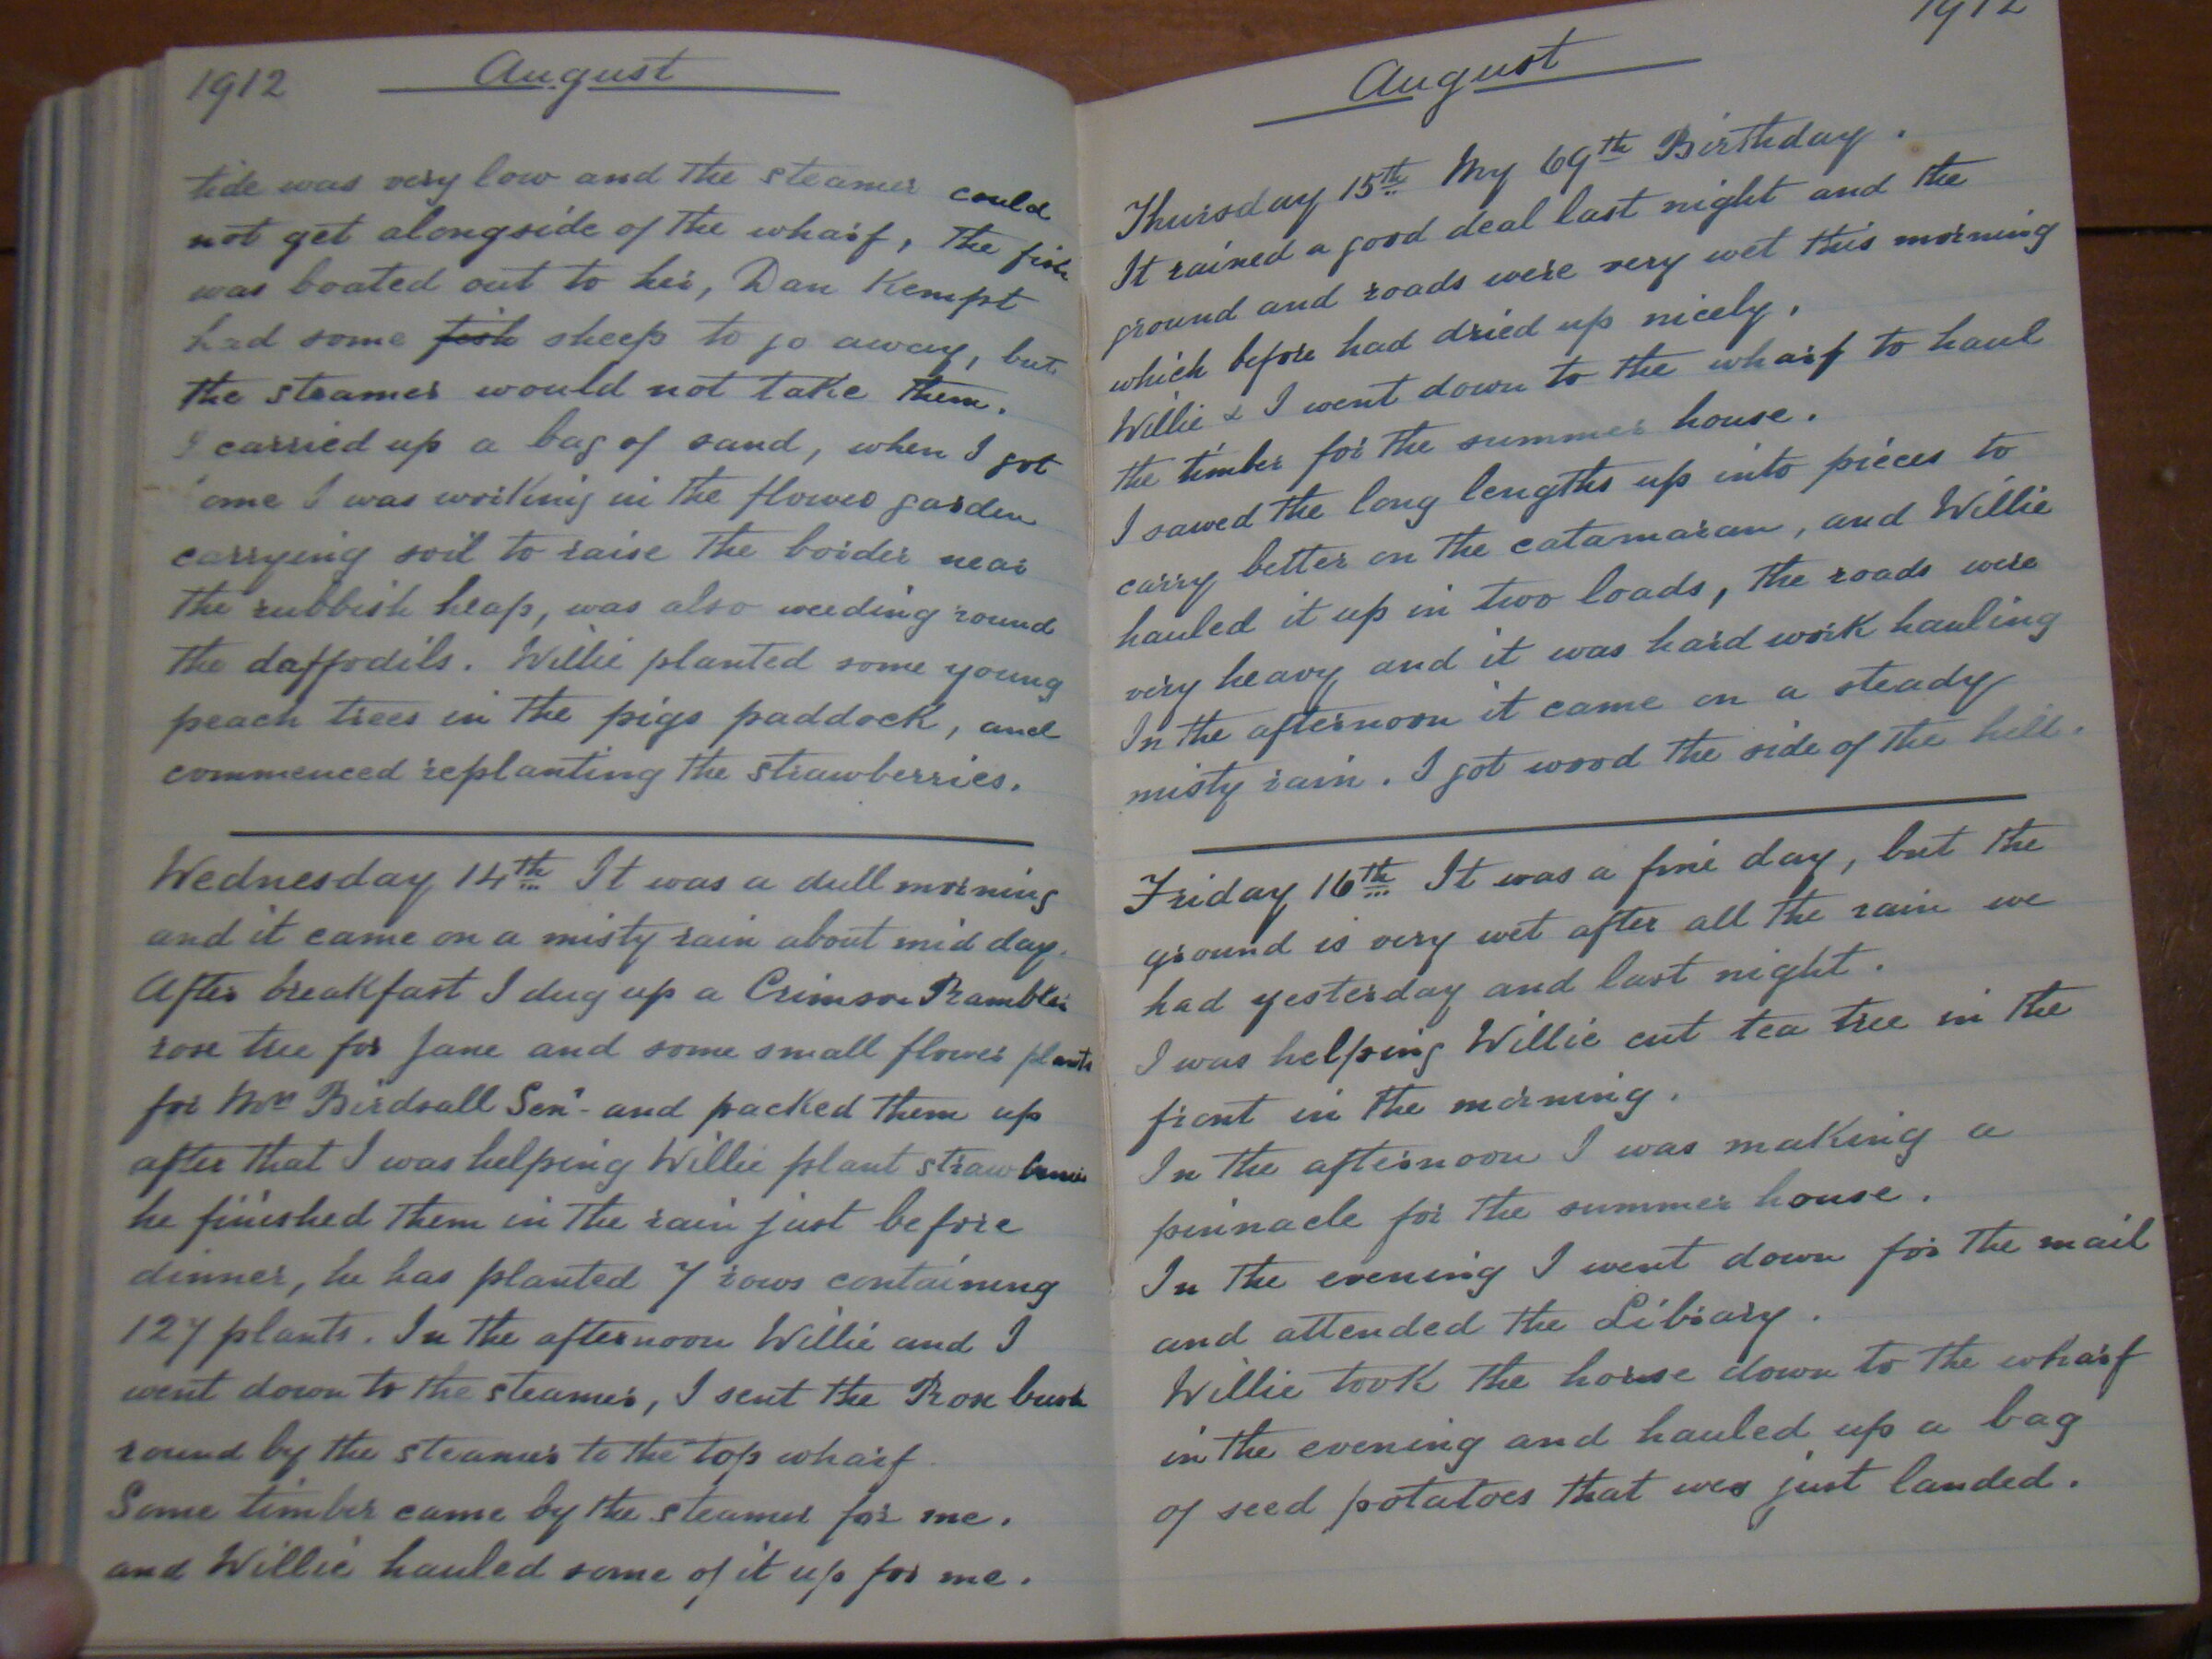 1912 August
tide was very low and the steamer could
not get alongside of the wharf, the fish
was boated out to her, Dan Kempt
had some fish sheep to go away, but
the steamer would not take them.
I carried up a bag of sand, when I got
ome I was working in the flower garden
carrying soil to raise the border near
the rubbish heap, was also weeding round
the daffodils. Willie planted some young
peach trees in the pigs paddock, and
commenced replanting the strawberries.
Wednesday 14th It was a dull morning
and it came on a misty rain about mid day.
After breakfast I dug up a Crimson Rambler
rose tree for Jane and some small flower plants
for Mrs Birdsall Senr- and packed them up
after that I was helping Willie plant strawberries
he finished them in the rain just before
dinner, he has planted 7 rows containing
127 plants. In the afternoon Willie and I
went down to the steamer, I sent the Rose bush
round by the steamer to the top wharf.
Some timber came by the steamer for me.
and Willie hauled some of it up for me.
1912
August
Thursday 15th My 69th Birthday.
It rained a good deal last night and the
ground and roads were very wet this morning
which before had dried up nicely.
Willie & I went down to the wharf to haul
the timber for the summer house.
I sawed the long lengths up into pieces to
carry better on the catamaran, and Willie
hauled it up in two loads, the roads were
very heavy and it was hard work hauling
In the afternoon it came on a steady
misty rain. I got wood the side of the hill.
Friday 16th It was a fine day, but the
ground is very wet after all the rain we
had yesterday and last night.
I was helping Willie cut tea tree in the
front in the morning.
In the afternoon I was making a
pinnacle for the summer house.
In the evening I went down for the mail
and attended the Library.
Willie took the horse down to the wharf
in the evening and hauled up a bag
of seed potatoes that was just landed.